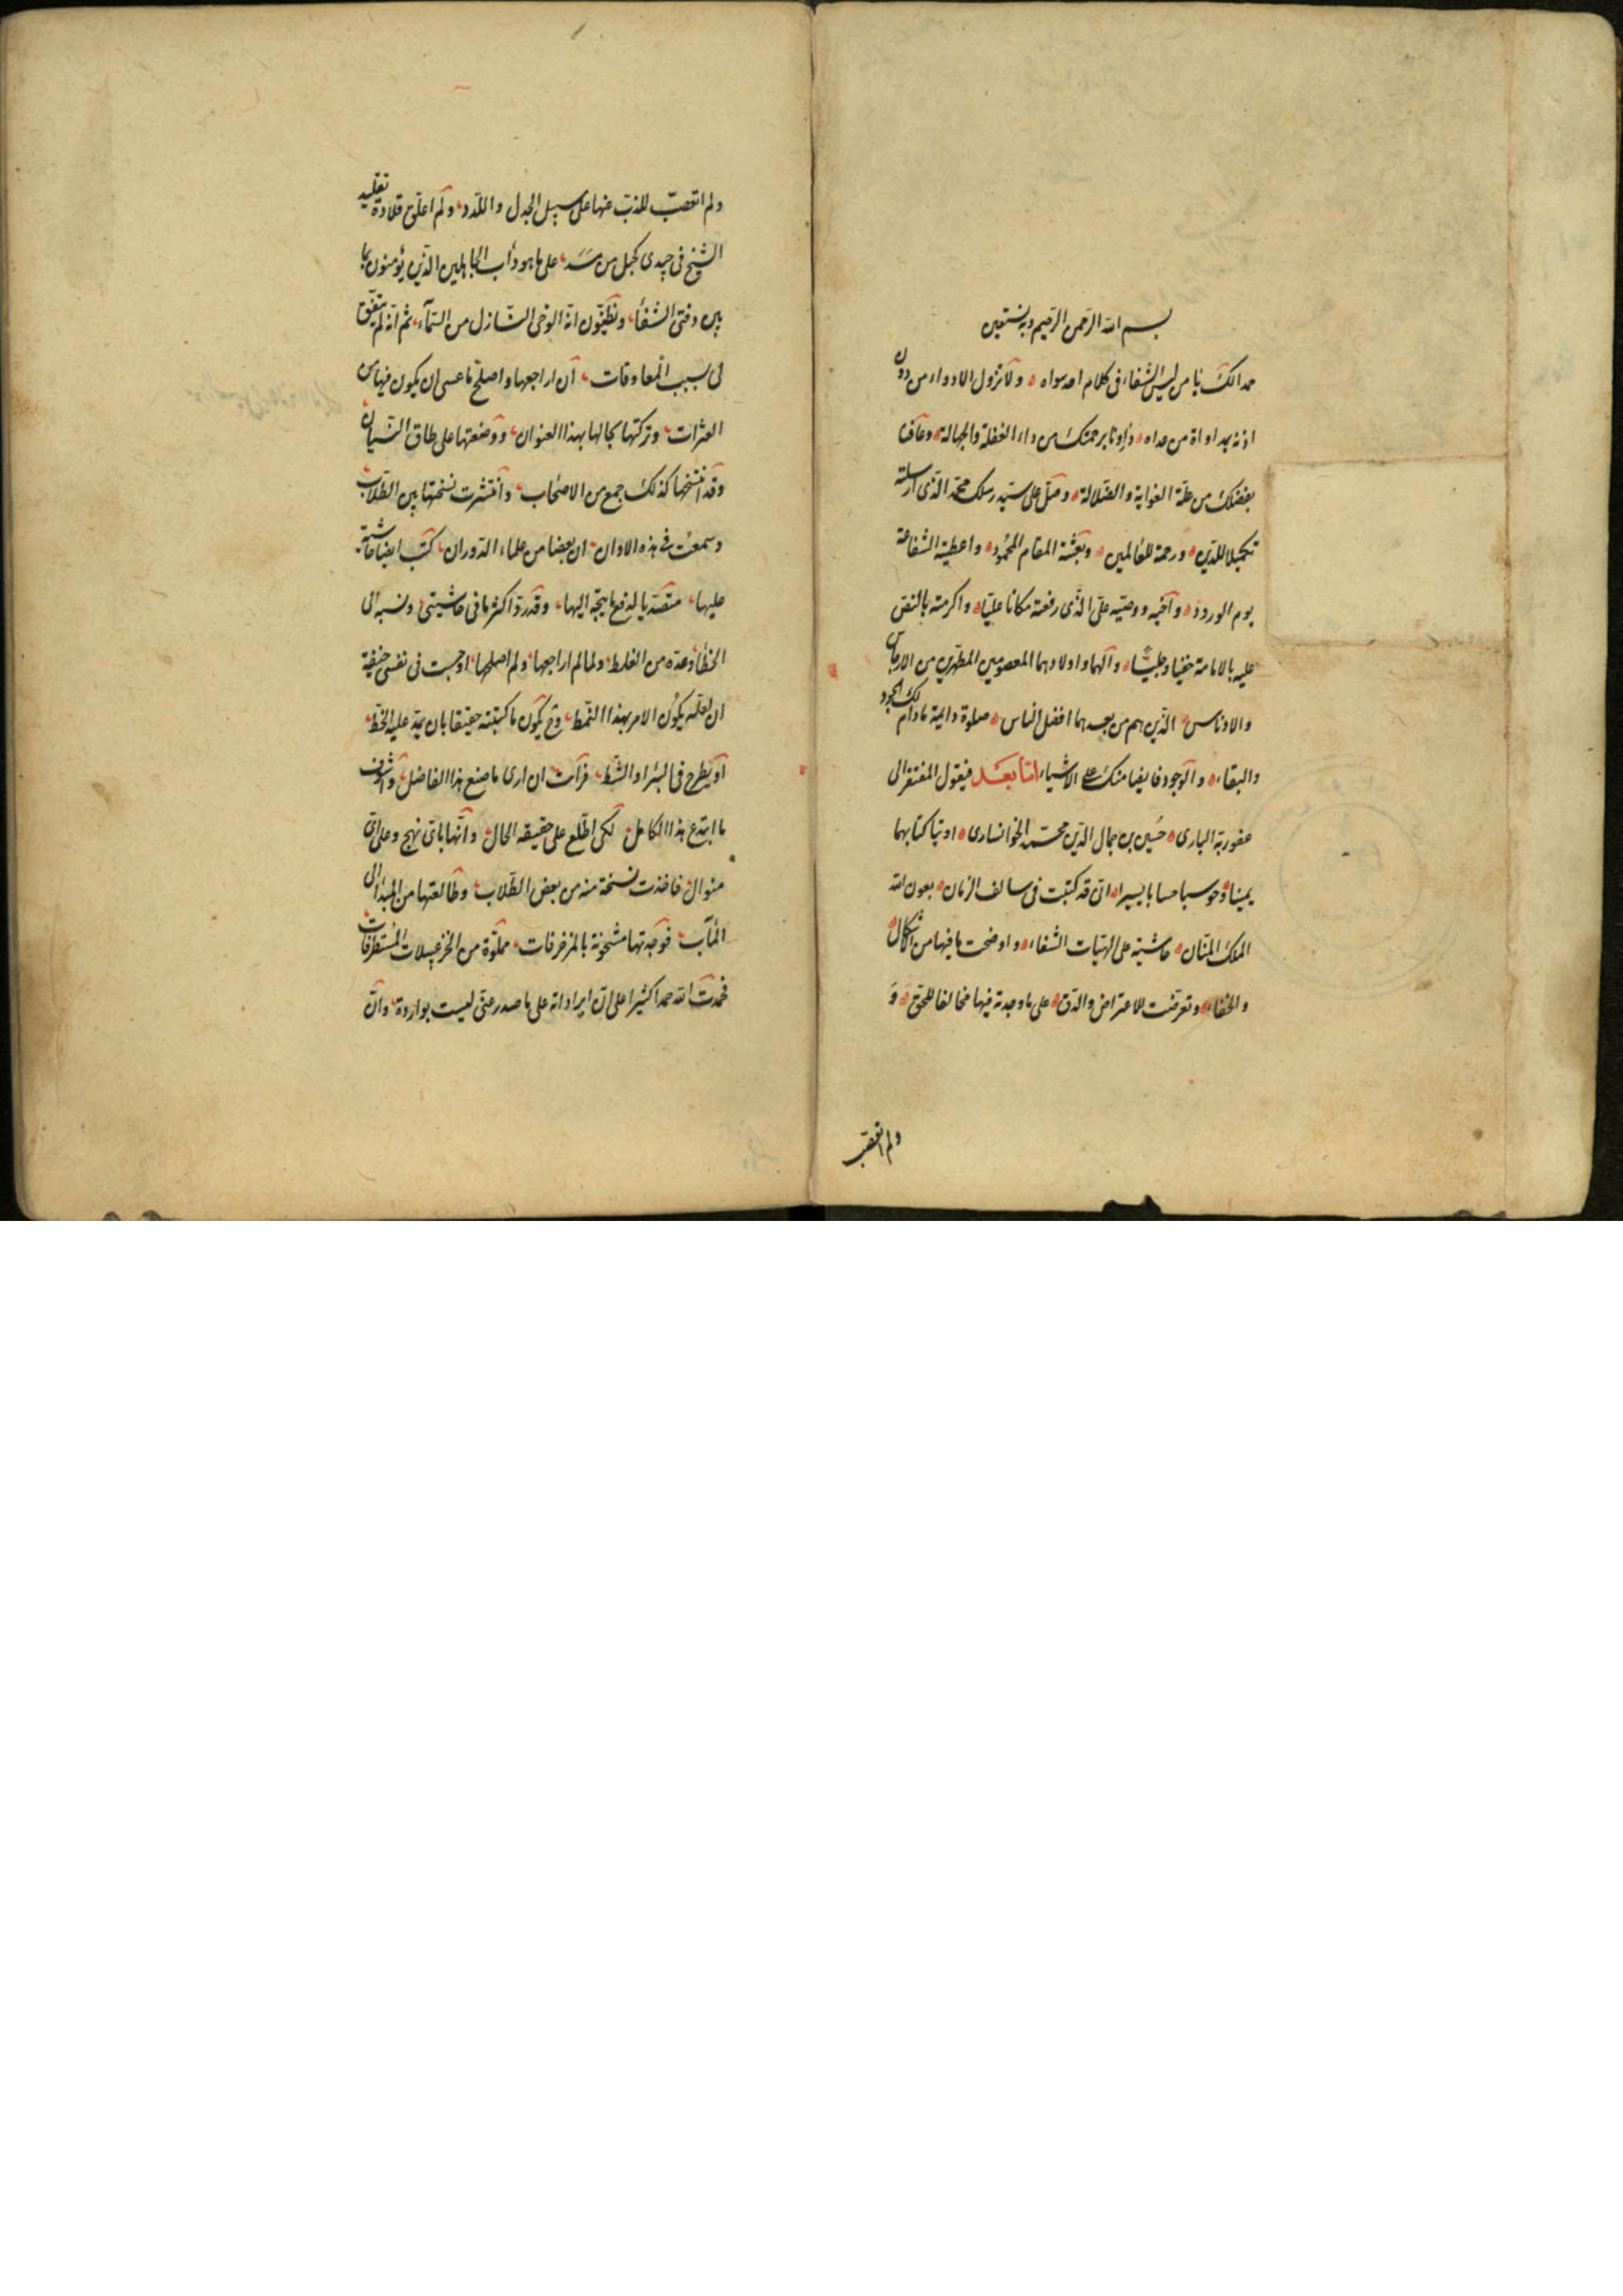 بسم الله الرحمن الرحيم وبه نستعين
حمدا لك يا من ليس الشفاء في كلام احد سواه ولا تزول الادواء من دون
اذنه بمداواة من عداه داونا برحمتك من داء الغفلة والجهالة وعافنا
بفضلك من علة الغواية والضلالة وصل على سيد رسلك محمد الذى ارسلته
تكميلا للدين ورحمة للعالمين وبعثته المقام المحمود واعطيته الشفاعة
يوم الورود وأخيه ووصيه على الذى رفعته مكانا عليا واكرمته بالنص
عليه بالامامة خفيا وجليا وآلهما واولادهما المعصومين المطهرين من الارجاس
والادناس الذين هم من بعدهما افضل الناس صلوة دائمة مادام لك الجود
والبقاء والوجود فايضا منك على الاشياء اما بعد فيقول المفتقر الى
عفو ربه البارى حسين بن جمال الدين محمد الخوانسارى اوتيا كتابهما
يمينا وحوسبا حسابا يسيرا انى قد كتبت فى سالف الزمان بعون الله
الملك المنان حاشية على الهيات الشفاء واوضحت ما فيها من الاشكال
والخفاء وتعرضت للاعتراض والدق على ما وجدته فيها مخالفا للحق و
ولم اتعصب
ولم اتعصب للذب عنها على سبيل الجدل واللدد ولم اعلق قلادة تقليد
الشيخ فى جيدى كحبل من مسد على ما هو دأب الجاهلين الذين يؤمنون بما
بين دفتى الشفا ويظنون انه الوحى النازل من السماء ثم انه لم يتفق
لى بسبب المعاوقات ان اراجعها واصلح ما عسى ان يكون فيها من
العثرات وتركتها بحالها بهذا العنوان ووضعتها على طاق النسيان
وقد انتسخها كذلك جمع من الاصحاب وانتشرت نسختها بين الطلاب
وسمعت فى هذه الاوان ان بعضا من علماء الدوران كتب ايضا حاشية
عليها متصديا لدفع ما يتجه اليها وقد رد اكثر ما فى حاشيتى ونسبه الى
الخطأ وعده من الغلط ولما لم اراجعها ولم اصلحها اوجست فى نفسى خيفة
ان لعله يكون الامر بهذا النمط وح يكون ما كتبته حقيقا بان يمد عليه الخط
او يطرح فى البئر او الشط فرأت ان ارى ما صنع هذا الفاضل
ما ابتدع هذا الكامل لكى اطلع على حقيقة الحال وانها باى نهج وعلى اى
منوال فاخذت نسخة منه من بعض الطلاب وطالعتها من المبدأ الى
المآب فوجدتها مشحونة بالمزخرفات مملوة من الخزعبيلات المستطرفات
فحمدت الله حمدا كثيرا على ان ايراداته على ما صدر عنى ليست بواردة وان